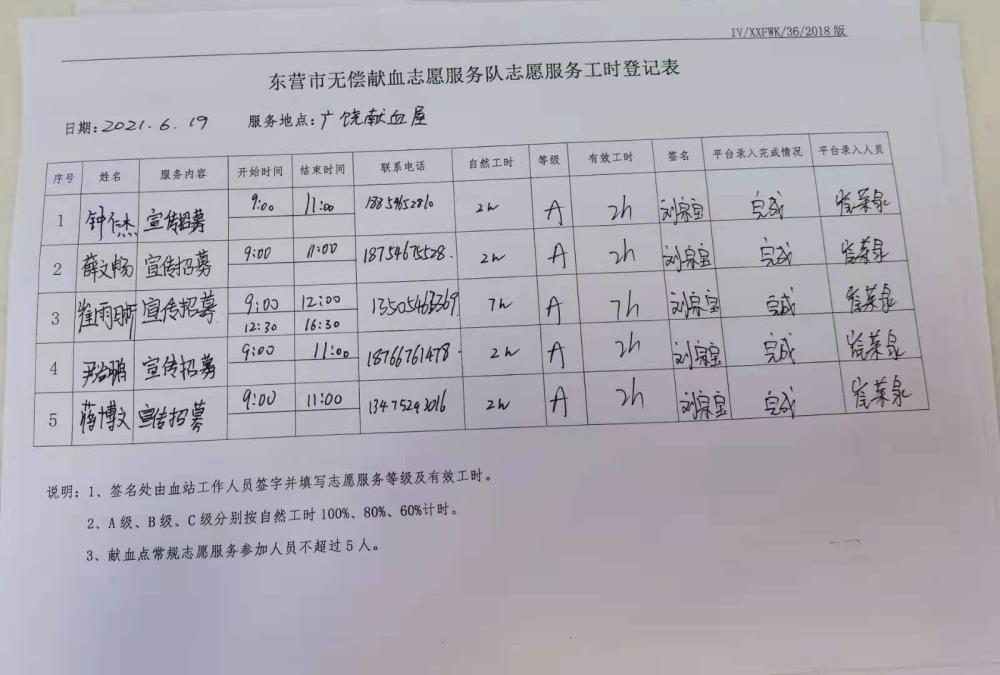 IV/XXFWK/36/2018版
东营市无偿献血志愿服务队志愿服务工时登记表
日期:2021.6.19 服务地点:广饶献血屋
序号 姓名 服务内容 开始时间 结束时间 联系电话 自然工时 等级 有效工时 签名 平台录入完成情况 平台录入人员
1 钟仁杰 宣传招募 9:00 11:00 2h A 2h 刘宗宝 完成
2 薛文畅 宣传招募 9:00 11:00 18754675528. 2h A 2h 刘宗宝 完成
3 崔雨昕 宣传招募 9:00 12:00 13505463369 7h A 7h 刘宗宝 完成
12:30 16:30
4 尹治鹏 宣传招募 9:00 11:00 18766761478. 2h A 2h 刘宗宝 完成
5 蒋博文 宣传招募 9:00 11:00 13475243016 2h A 2h 刘宗宝 完成
说明:1、签名处由血站工作人员签字并填写志愿服务等级及有效工时。
2、A级、B级、C级分别按自然工时100%、80%、60%计时。
3、献血点常规志愿服务参加人员不超过5人。